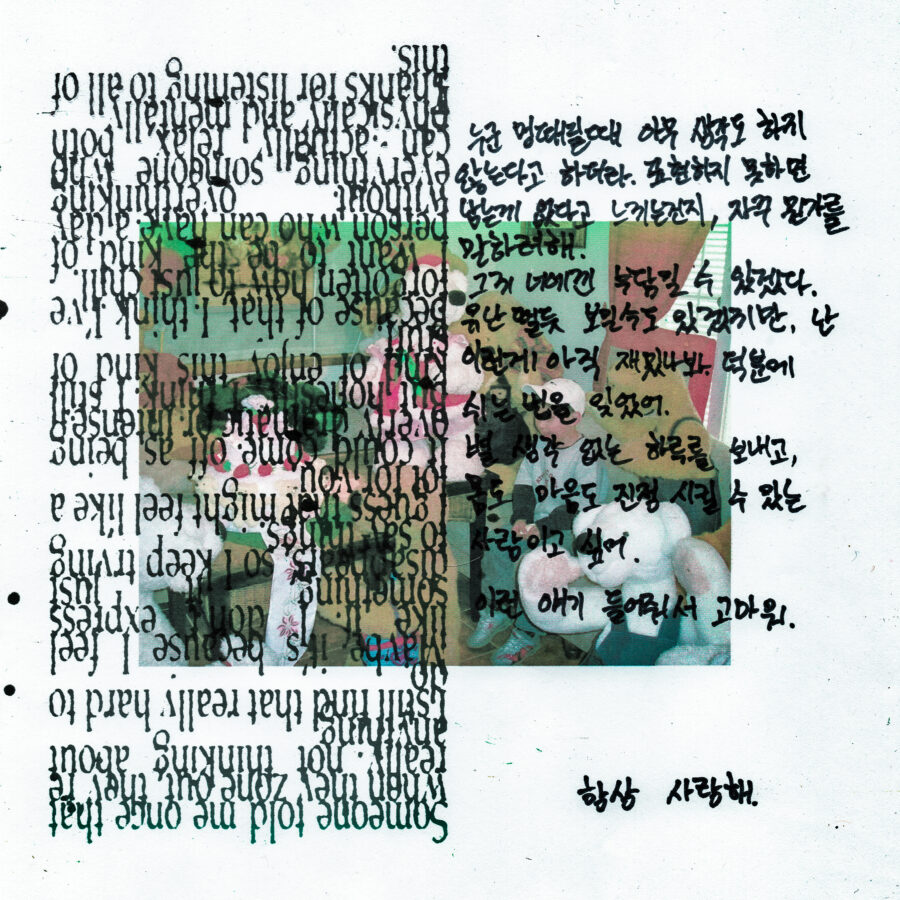 Someone told me once that
when they zone out, they're
really not thinking about
anything.
I still find that really hard to
do.
Maybe it's because I feel
like if I don't express
something, I just
disappear, so I keep trying
to say things.
I guess that might feel like a
lot for you.
It could come off as being
overly dramatic or intense,
but honestly, I think I still
kind of enjoy this kind of
stuff.
Because of that, I think I've
forgotten how to just chill.
I want to be the kind of
person who can have a day
without overthinking
everything, someone who
can actually relax, both
physically and mentally.
Thanks for listening to all of
this.
누군 멍때릴때 아무 생각도 하지
않는다고 하더라. 표현하지 못하면
남는게 없다고 느끼는건지, 자꾸 뭔가를
말하려해.
그게 너에겐 부담일 수 있겠다.
유난 떨듯 보일수도 있겠지만, 난
이런게 아직 재밌나봐. 덕분에
쉬는 법을 잊었어.
별 생각 없는 하루를 보내고,
몸도 마음도 진정 시킬 수 있는
사람이고 싶어.
이런 얘기 들어줘서 고마워.
항상 사랑해.